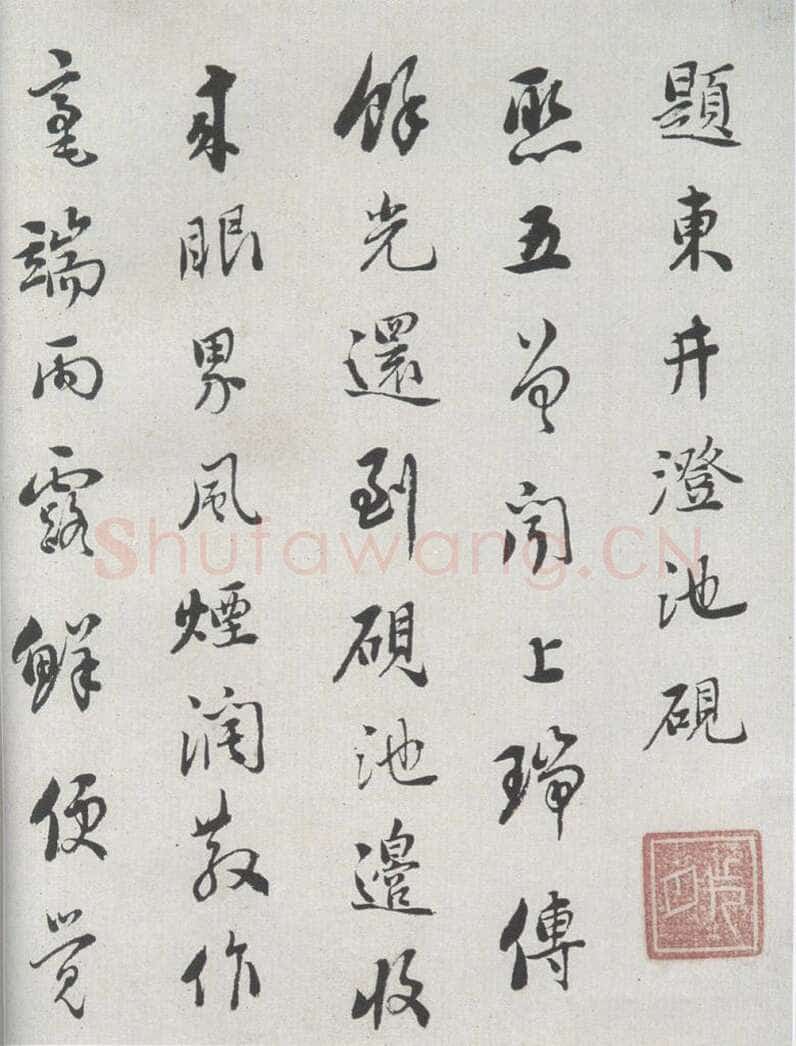 題東井澄池硯
聚五曾聞上瑞傳
餘光還到硯池邊收
來眼界風煙潤散作
毫端雨露鮮便覺
Shufawang.CN